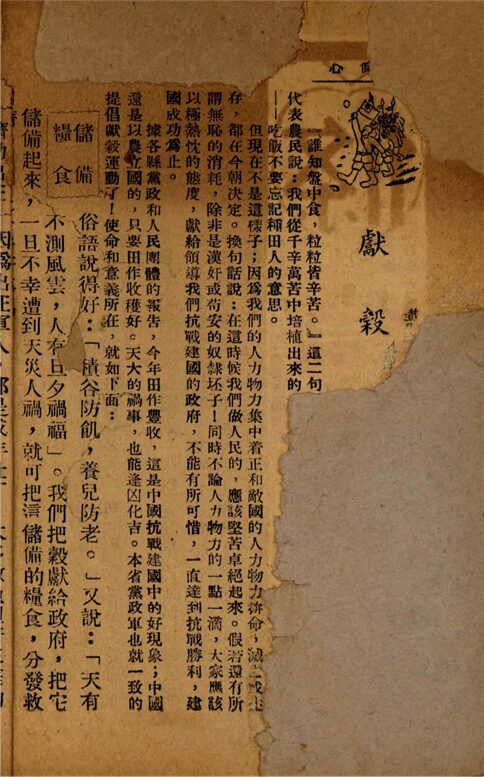 獻穀
『誰知盤中食，粒粒皆辛苦。』這二句
代表農民說：我們從千辛萬苦中培植出來的
——吃飯不要忘記種田人的意思。
但現在不是這樣子；因為我們的人力物力集中着正和敵國的人力物力拚命，滅亡或生
存，都在今朝決定。換句話說：在這時候我們做人民的，應該堅苦卓絕起來。假若還有所
謂無恥的消耗，除非是漢奸或苟安的奴隸坯子！同時不論人力物力的一點一滴，大家應該
以極熱忱的態度，獻給領導我們抗戰建國的政府，不能有所可惜，一直達到抗戰勝利，建
國成功為止。
據各縣黨政和人民團體的報告，今年田作豐收，這是中國抗戰建國中的好現象；中國
還是以農立國的，只要田作收穫好。天大的禍事，也能逢凶化吉。本省黨政軍也就一致的
提倡獻穀運動了！使命和意義所在，就如下面：
儲備
糧食
俗語說得好：「積谷防飢，養兒防老。」又說：「天有
不測風雲，人有旦夕禍福」。我們把穀獻給政府，把它
儲備起來，一旦不幸遭到天災人禍，就可把這儲備的糧食，分發救